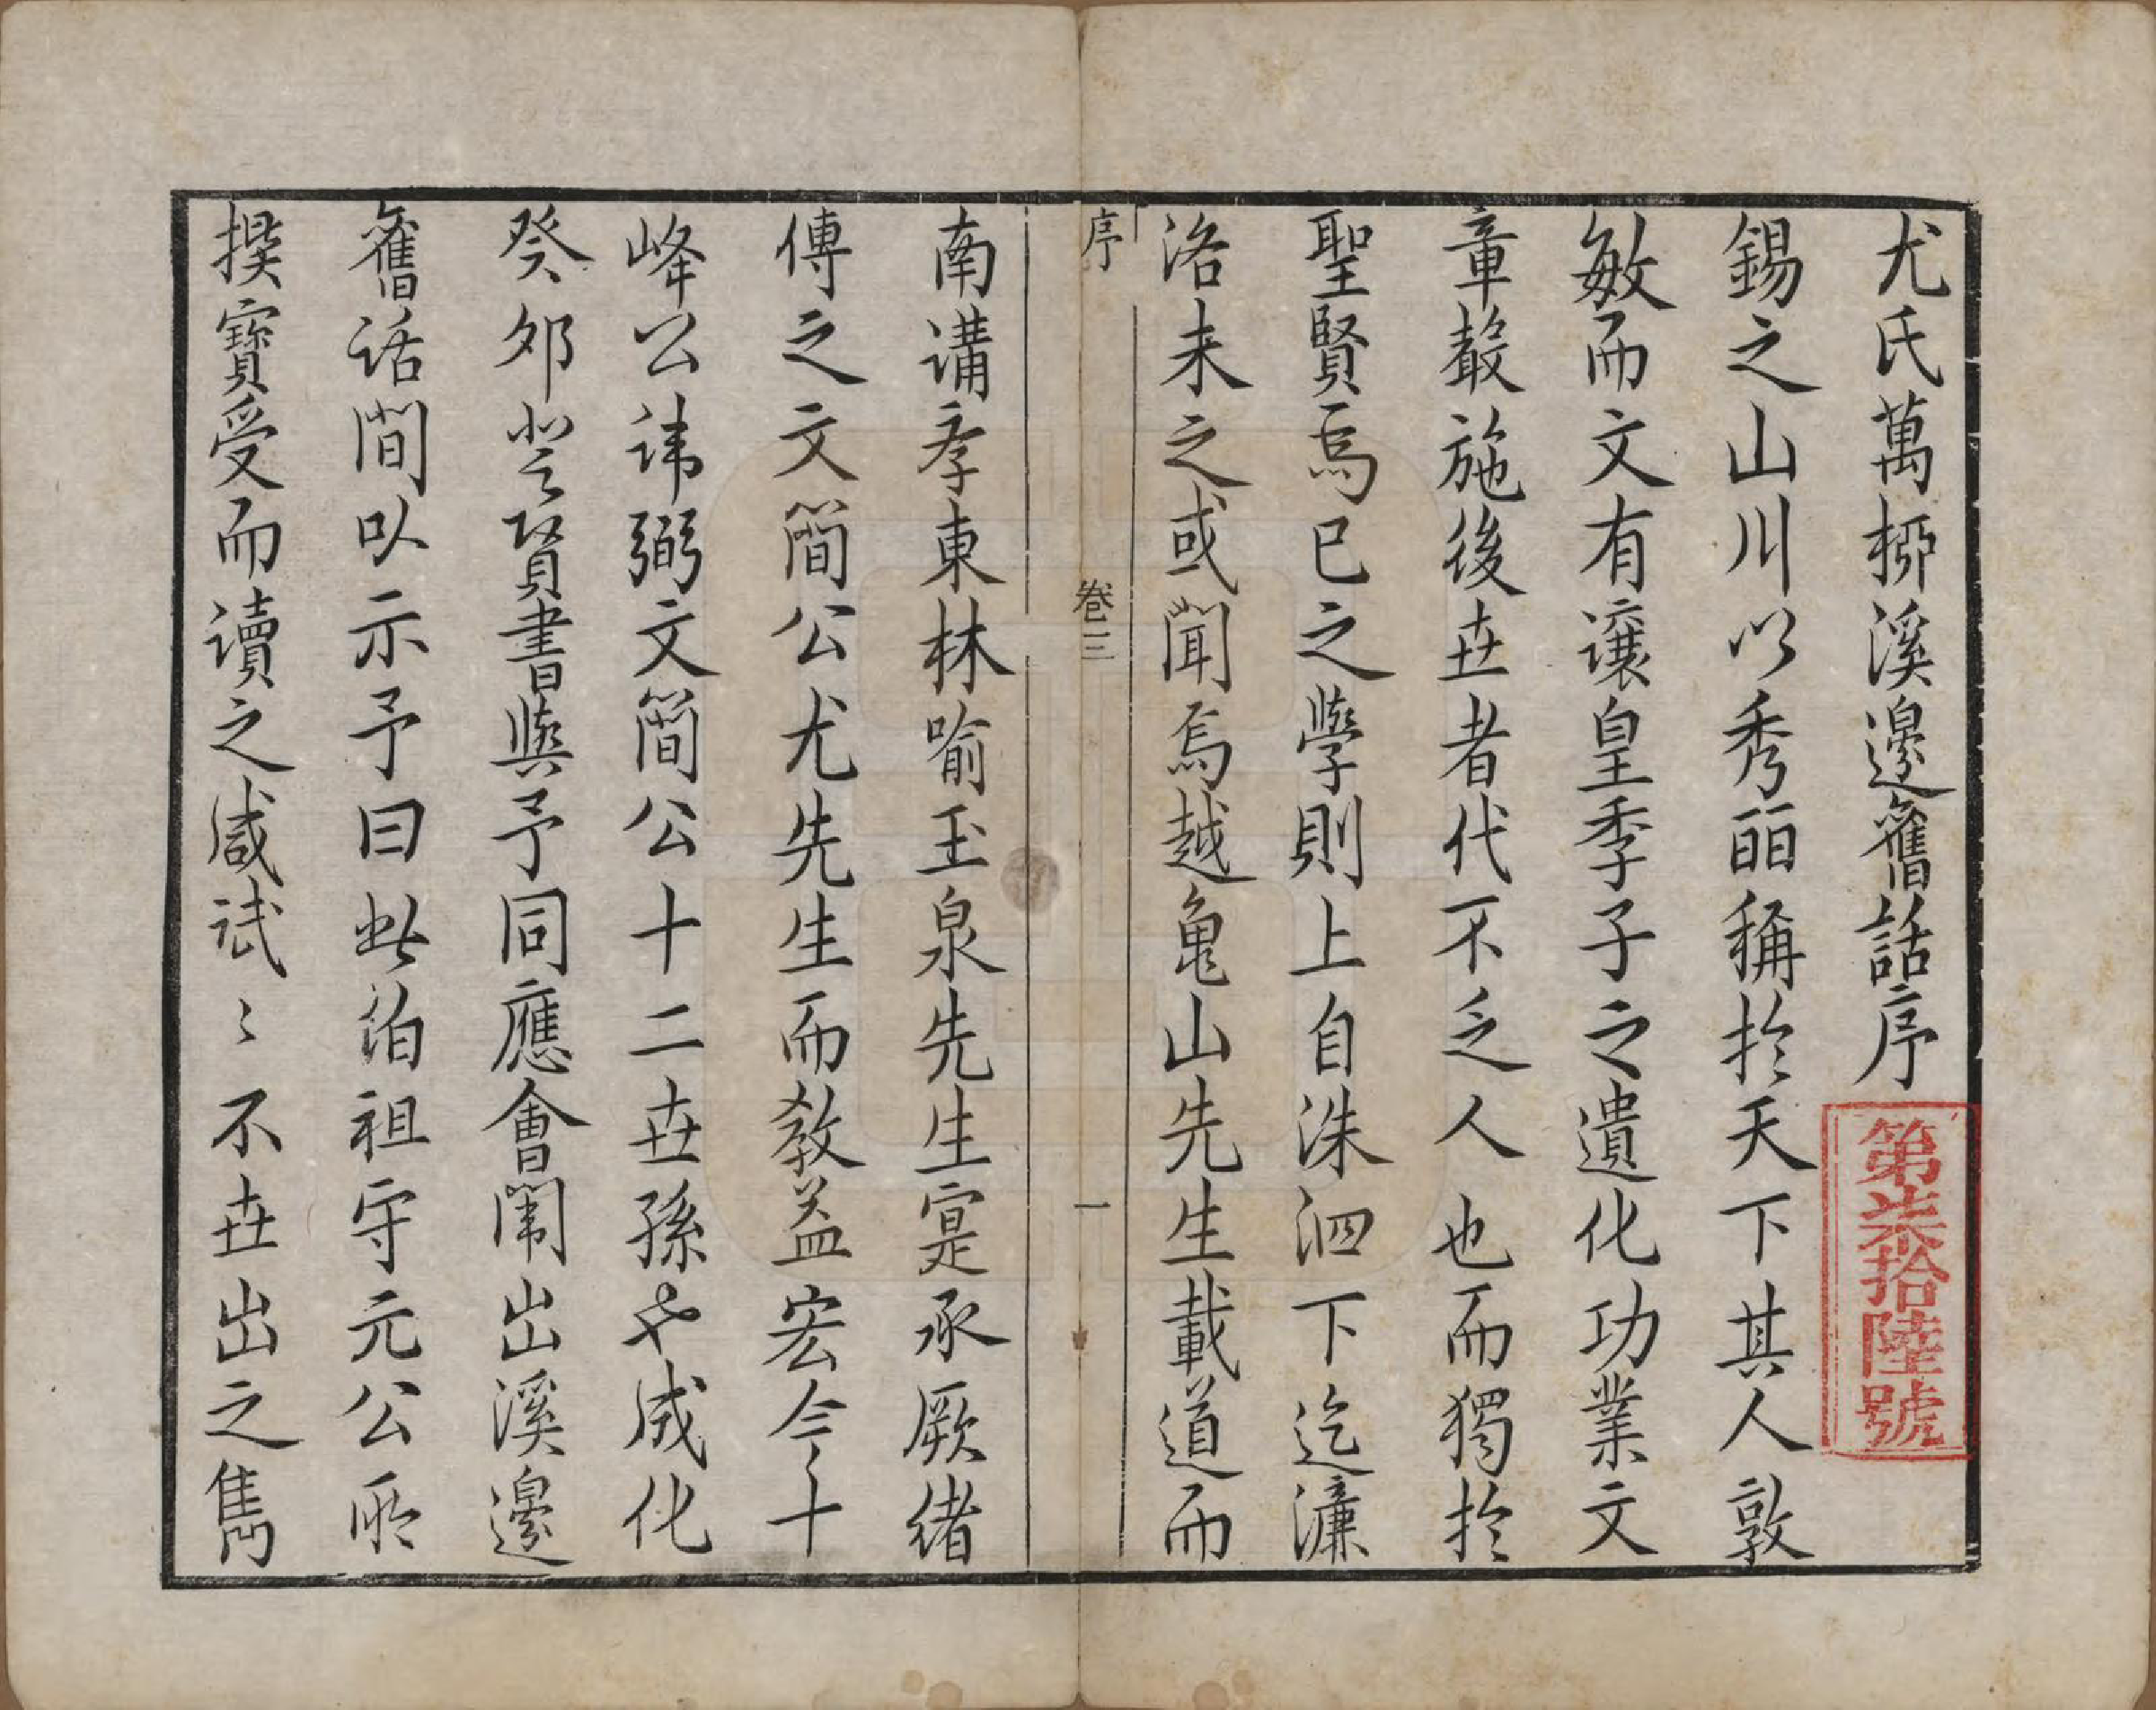 尤氏萬栁溪邊舊話序
第柒拾陸號
錫之山川以秀丽稱於天下其人敦
敏而文有讓皇季子之遺化功業文
章嚴施後丗者代不乏人也而獨於
聖賢爲已之學則上自洙泗下迄濂
洛未之或聞焉越龜山先生載道而
序
卷三
一
南講孝東林喻玉泉先生寔承厥緒
傳之文簡公尤先生而教益宏今十
峰公諱弼文簡公十二丗孫也成化
癸卯登賢書與予同應會闈出溪邊
舊话間以示予曰此伯祖守元公所
撰寶受而讀之咸誠〻不丗出之雋